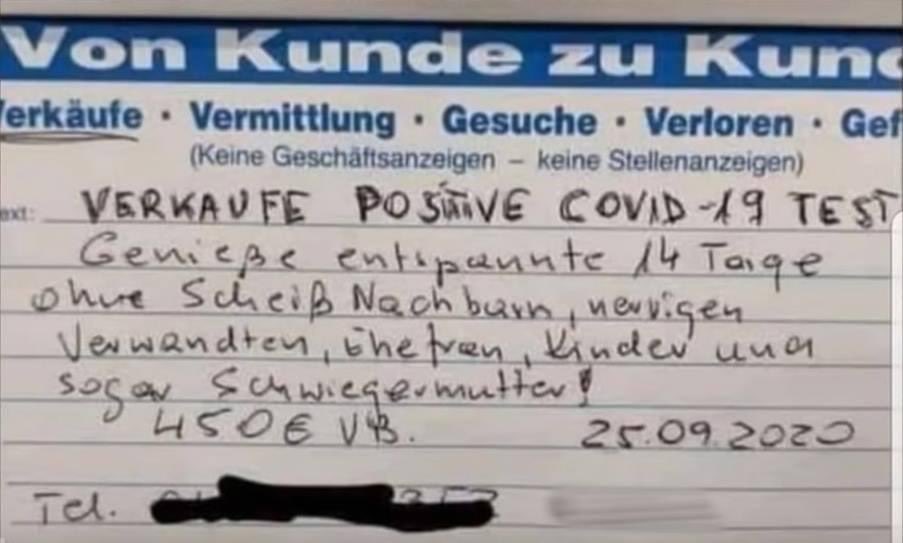 Von Kunde zu Kund
erkäufe · Vermittlung · Gesuche · Verloren · Gef
(Keine Geschäftsanzeigen – keine Stellenanzeigen)
ext: VERKAUFE POSITIVE COVID-19 TEST
Genieße entspannte 14 Tage
ohne Scheiß Nachbarn, nervigen
Verwandten, Ehefrau, Kinder und
sogar Schwiegermutter!
450€ VB. 25.09.2020
Tel.